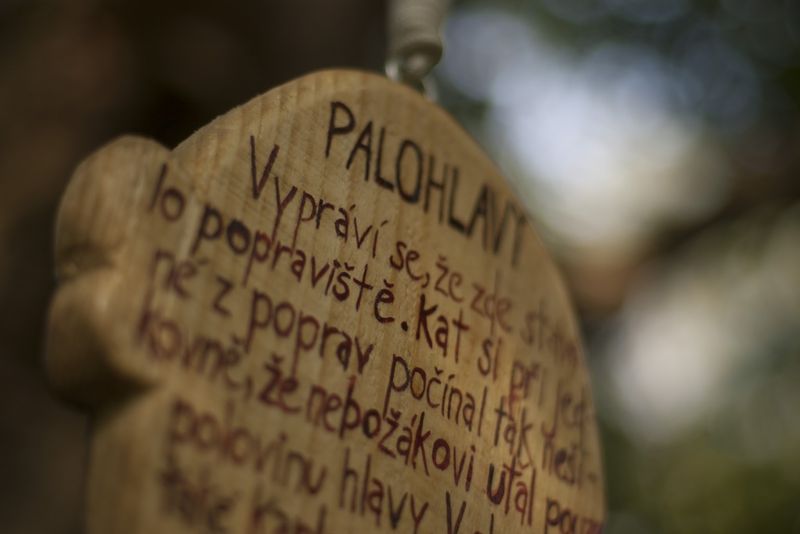 PALOHLAVÝ
Vypráví se, že zde stáva-
lo popraviště. Kat si při jed-
né z poprav počínal tak nešי-
kovně, že nebožákovi uťal pouze
polovinu hlavy. V